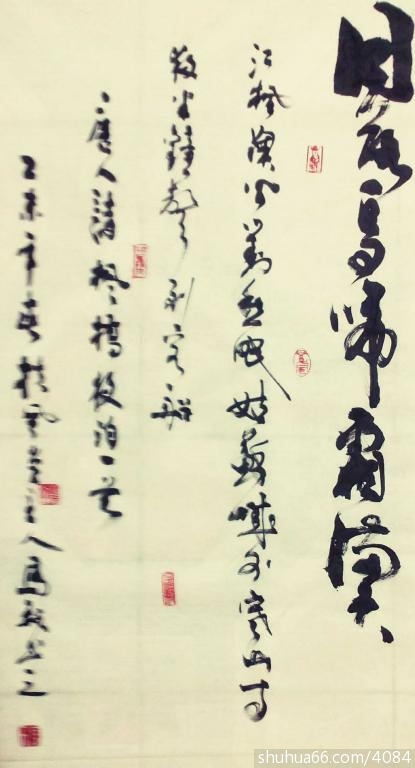 月落烏啼霜滿天
江楓漁火對愁眠姑蘇城外寒山寺
夜半鐘聲到客船
唐人詩楓橋夜泊一首
乙未年春於主人書之
shuhua66.com/4084